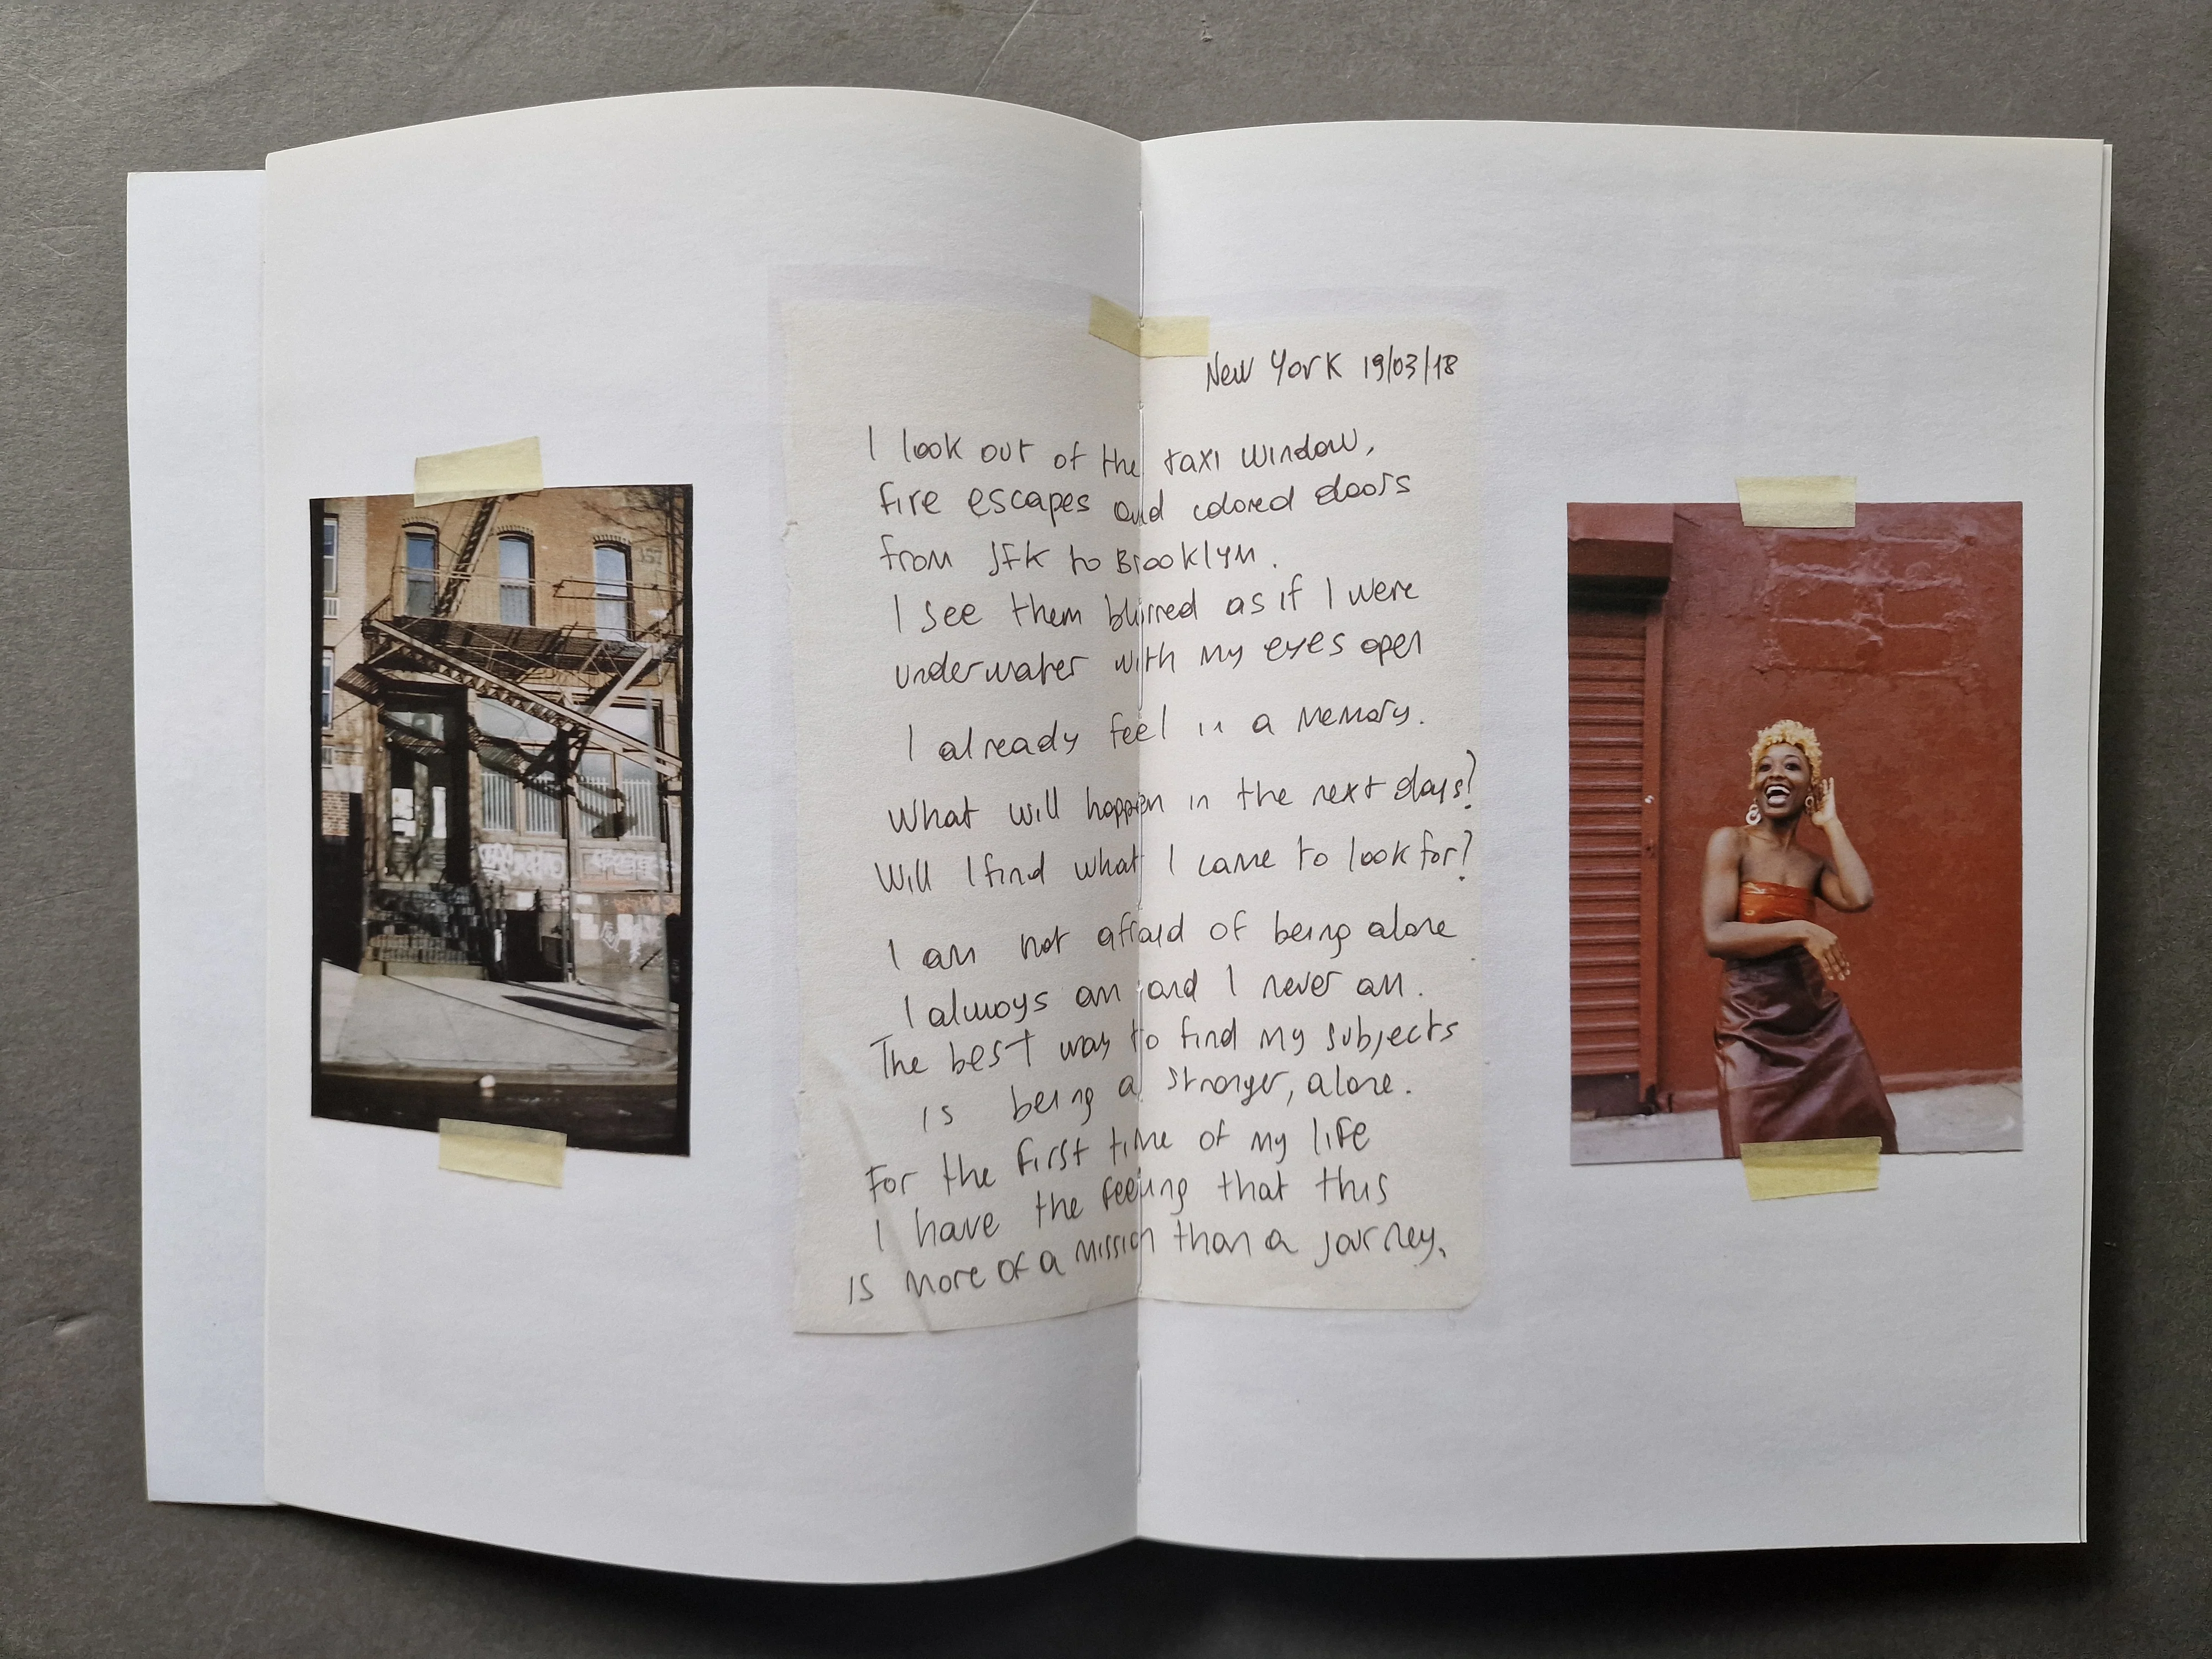 New York 19/03/18
I look out of the taxi window,
fire escapes and colored doors
from JFK to Brooklyn.
I see them blurred as if I were
underwater with my eyes open
I already feel in a memory.
What will happen in the next days?
Will I find what I came to look for?
I am not afraid of being alone
I always am and I never am.
The best way to find my subjects
is being a stranger, alone.
For the first time of my life
I have the feeling that this
is more of a mission than a journey.
157